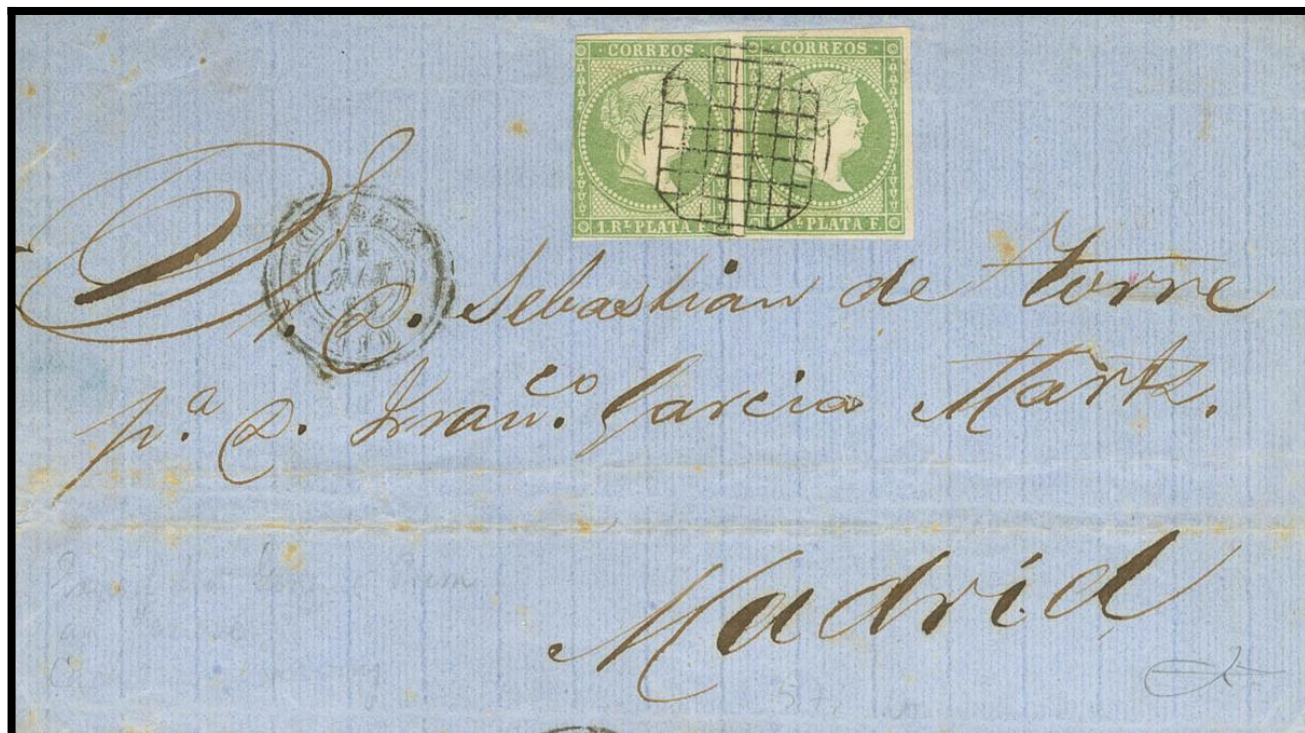 CORREOS CORREOS
1. Rl. PLATA F. 1. Rl. PLATA F.
Sr. D. Sebastian de Torre
p.a D. Fran.co Garcia Martz.
Madrid